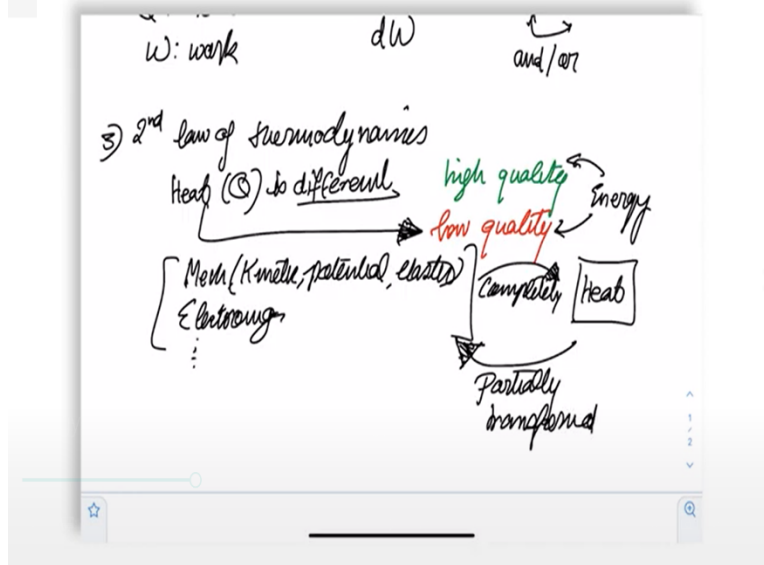 W: work
dW
and/or
3) 2nd law of thermodynamics
Heat (Q) is different
high quality
low quality
Energy
Mech (Kinetic, potential, elastic)
Completely
Heat
Electromag
Partially
transformed
1
/
2